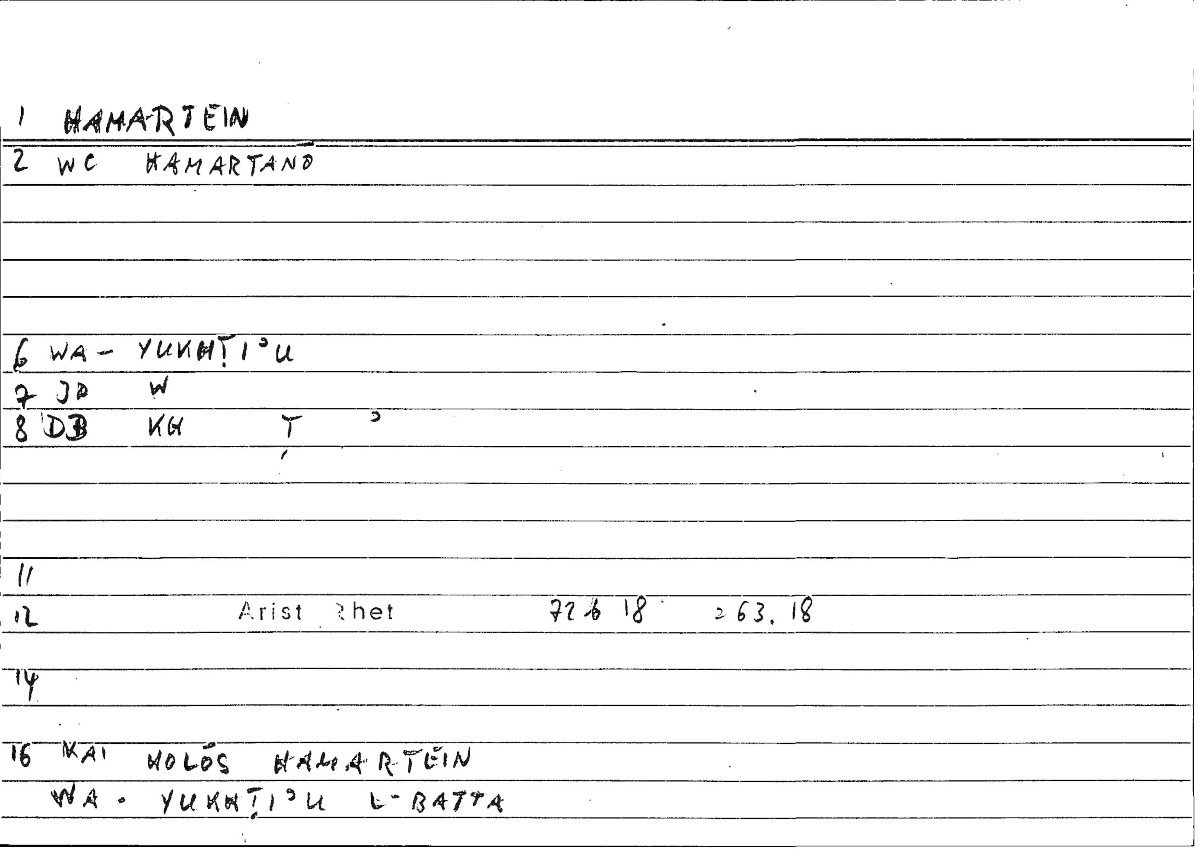 1 HAMARTEĪN
2 WC HAMARTANŌ
6 WA - YUKHṬIʾU
7 JD W
8 DB KH Ṭ ʾ
11
12 Arist Rhet 72b 18 263.18
14
16 KAI HOLŌS HAMARTEĪN
WA - YUKHṬIʾU L-BATTA